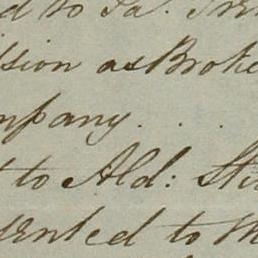 d to Ja:
ssion as Broke
mpany . . .
t to Ald: Ste
sented to M